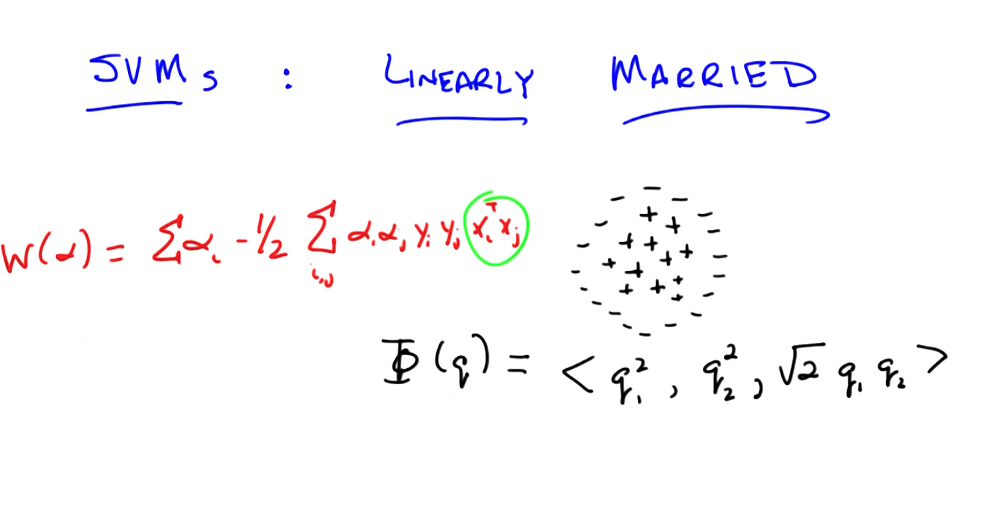 SVMs : LINEARLY MARRIED
W(α) = Σαᵢ - 1/2 Σᵢ,ⱼ αᵢαⱼ yᵢ yⱼ xᵢᵀxⱼ
Φ(q) = < q₁², q₂², √2 q₁ q₂ >